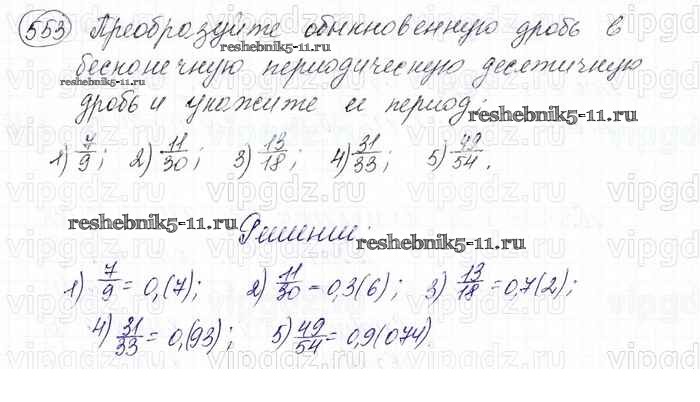 553 Преобразуйте обыкновенную дробь в
бесконечную периодическую десятичную
дробь и укажите ее период:
1) 7/9; 2) 11/30; 3) 13/18; 4) 31/33; 5) 49/54.
Решение:
1) 7/9 = 0,(7); 2) 11/30 = 0,3(6); 3) 13/18 = 0,7(2);
4) 31/33 = 0,(93); 5) 49/54 = 0,9(074).
reshebnik5-11.ru
reshebnik5-11.ru
reshebnik5-11.ru
reshebnik5-11.ru
reshebnik5-11.ru
vipgdz.ru